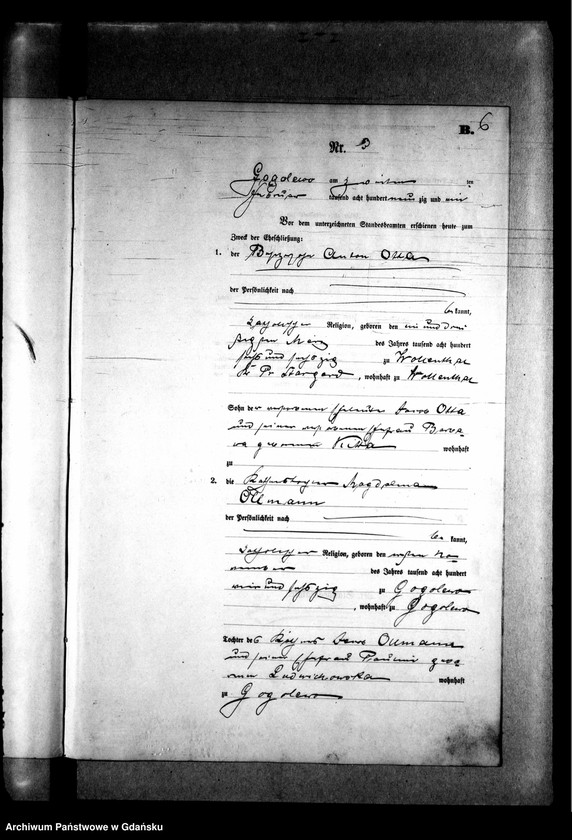 B. 6
Nr. 3
Gogolewo am zweiten ten
Februar tausend acht hundert neun zig und ein
Vor dem unterzeichneten Standesbeamten erschienen heute zum
Zweck der Eheschließung:
1. der Anton Otta
der Persönlichkeit nach
be kannt,
katholischer Religion, geboren den ein und drei
ßigsten März des Jahres tausend acht hundert
sechs und sechszig zu Wollenthal
Kr. Pr. Stargard, wohnhaft zu Wollenthal
Sohn der verstorbenen Otta
und seiner verstorbenen Ehefrau Barba
ra geborenen wohnhaft
zu
2. die Magdalena
Ollmann
der Persönlichkeit nach
be kannt,
katholischer Religion, geboren den ersten No
vember des Jahres tausend acht hundert
und sechszig zu Gogolewo
, wohnhaft zu Gogolewo
Tochter des Ollmann
und seiner Ehefrau gebo
renen Ludwichowska wohnhaft
zu Gogolewo
Archiwum Państwowe w Gdańsku